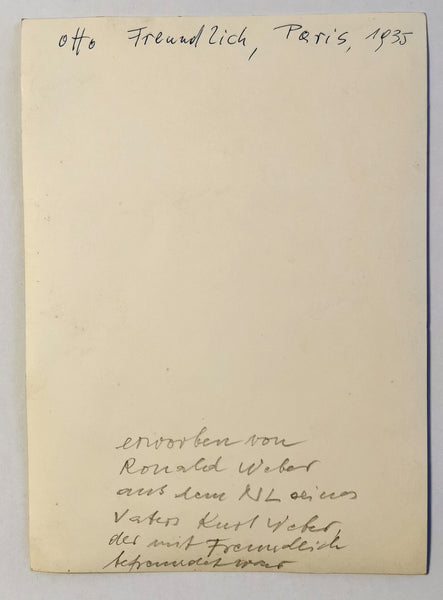 Otto Freundlich, Paris, 1935
erworben von
Ronald Weber
aus dem NL seines
Vaters Kurt Weber,
der mit Freundlich
befreundet war